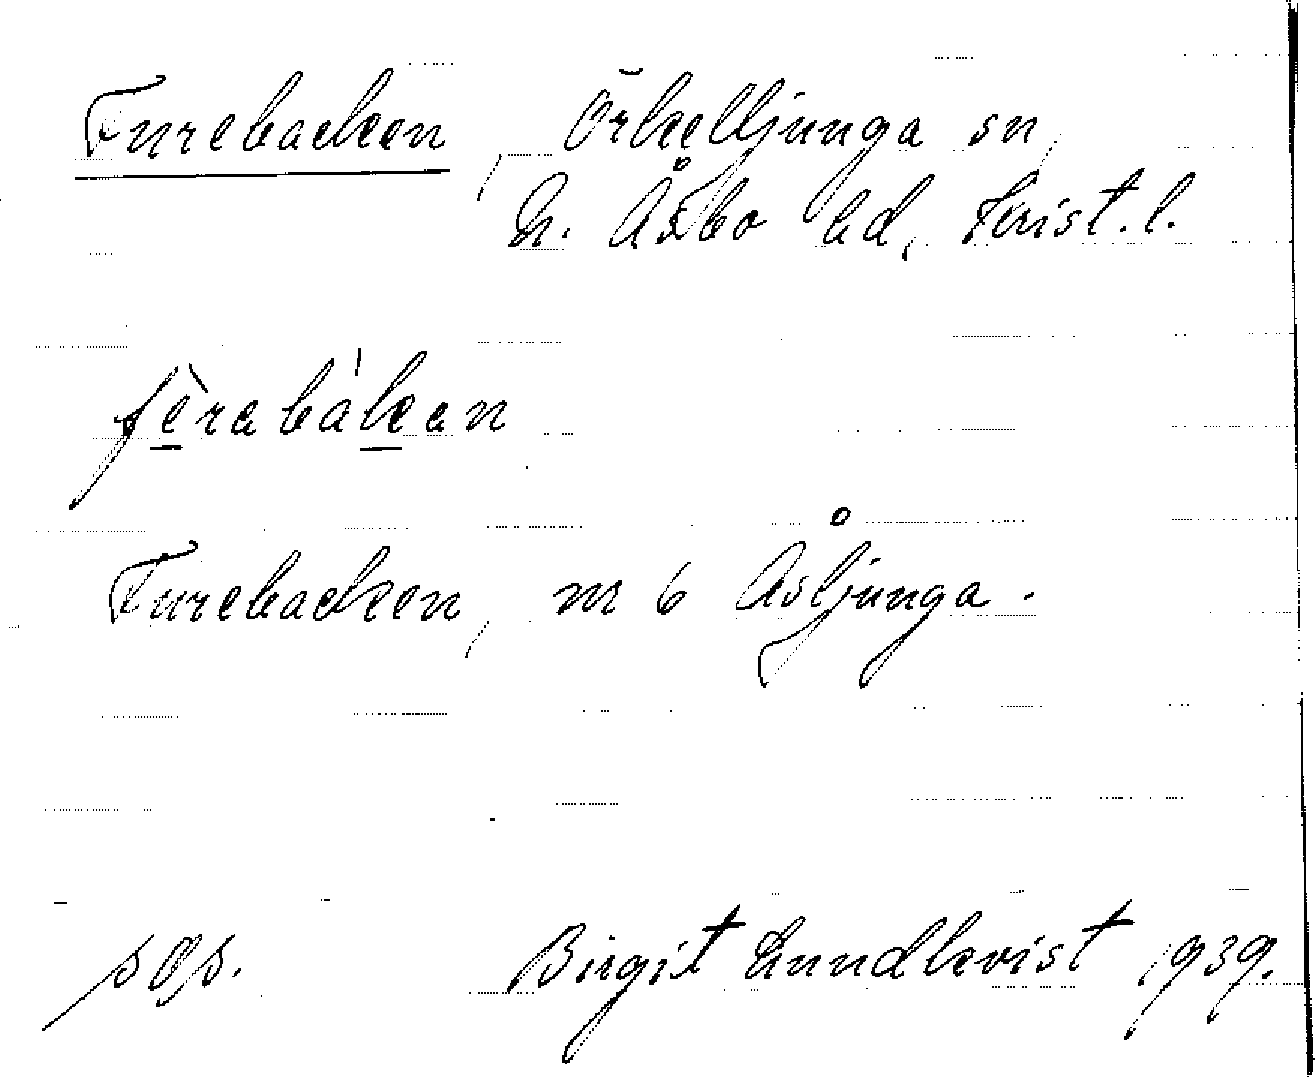 Furebacken, Örkelljunga sn,
N. Åsbo hd, Krist. l.
fèrabákan
Furebacken, nr 6 Åsljunga.
Birgit Lundkvist 1939.